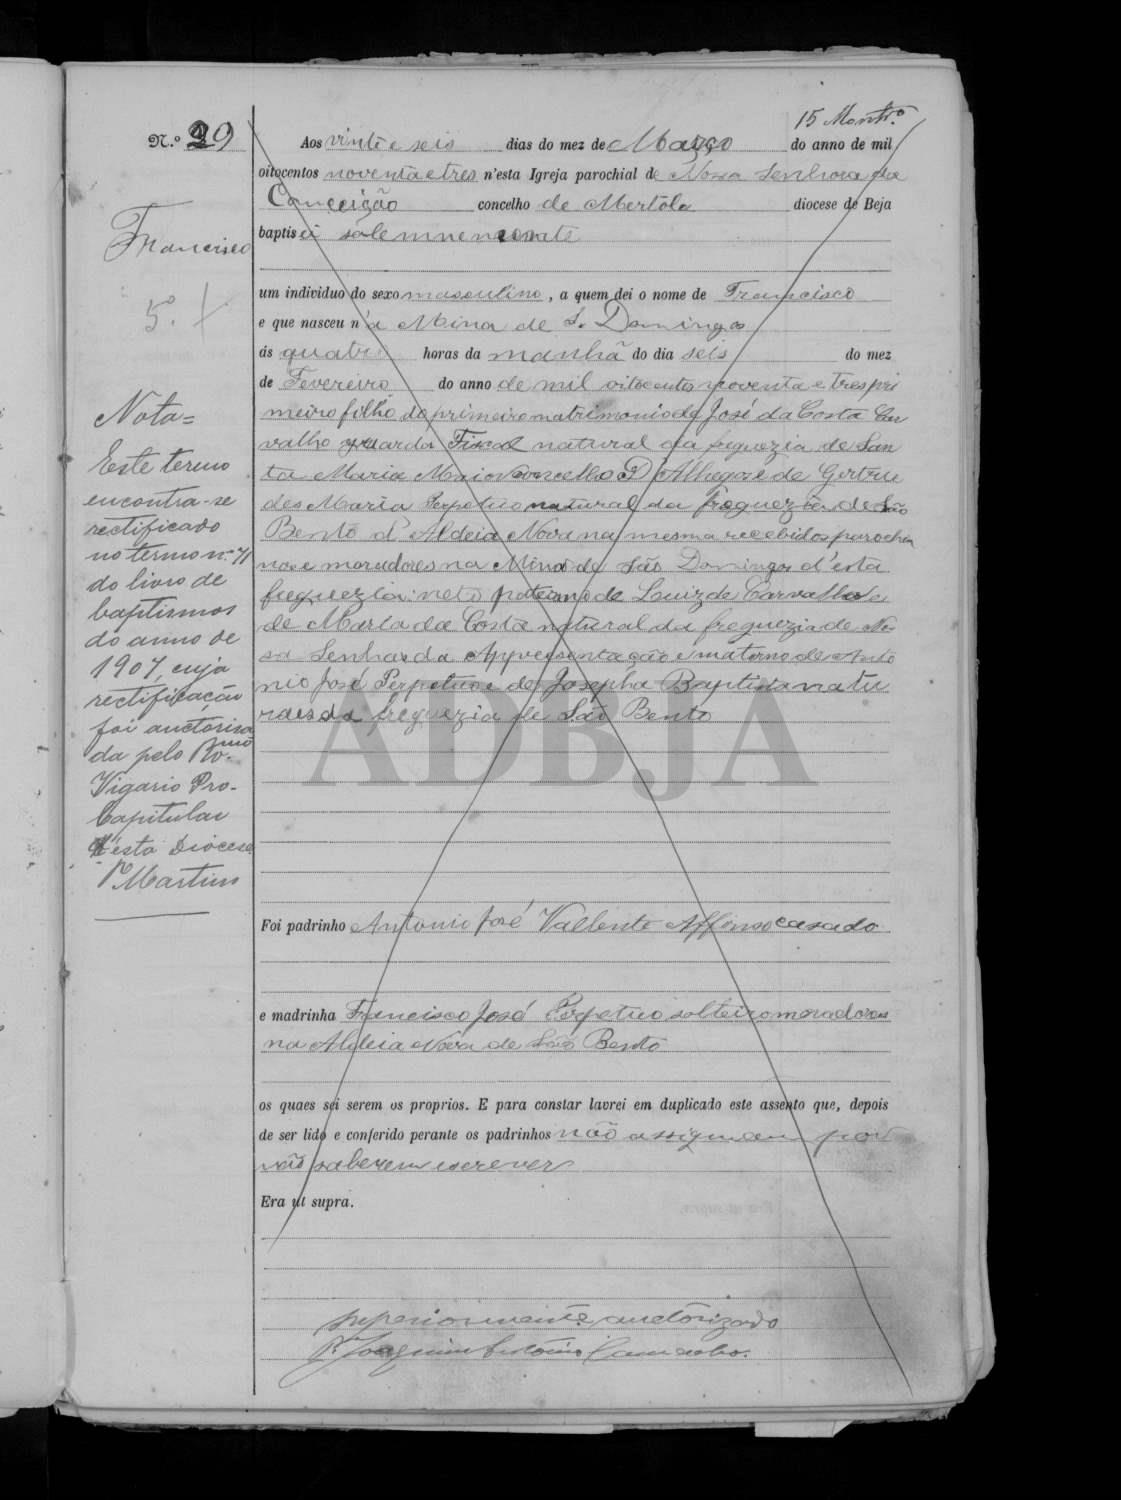 15 Montr.º
N.º 29
Aos vinte e seis dias do mez de Março do anno de mil
oitocentos noventa e tres n'esta Igreja parochial de Nossa Senhora da
Conceição concelho de Mertola diocese de Beja
baptisei solemnemente
Francisco
um individuo do sexo masculino, a quem dei o nome de Francisco
5.º
e que nasceu n'a Mina de S. Domingos
ás quatro horas da manhã do dia seis do mez
de Fevereiro do anno de mil oitocentos noventa e tres pri
meiro filho do primeiro matrimonio de José da Costa Car
valho guarda Fiscal natural da freguezia de San
ta Maria Maior concelho d' e de Gertru
des Maria Perpetuo natural da freguezia de São
Bento d' Aldeia Nova na mesma recebidos parochia
nos e moradores na Mina de São Domingos d'esta
freguezia: neto paterno de Luiz de Carvalho e
de Maria da Costa natural da freguezia de Nos
sa Senhora da Appresentação e materno de Anto
nio José Perpetuo e de Josepha Baptista natu
raes da freguezia de São Bento
Nota=
Este termo
encontra-se
rectificado
no termo n.º 71
do livro de
baptismos
do anno de
1907, cuja
rectificação
foi auctorisa
da pelo Rv.mo
Vigario Pro-
Capitular
d'esta Diocese
P.e Martins
ADBJA
Foi padrinho Antonio José Vallente Affonso casado
e madrinha Francisco José Perpetuo solteiro moradores
na Aldeia Nova de São Bento
os quaes sei serem os proprios. E para constar lavrei em duplicado este assento que, depois
de ser lido e conferido perante os padrinhos não assignam por
não saberem escrever
Era ut supra.
superiormente auctorizado
P.e Joaquim Antonio